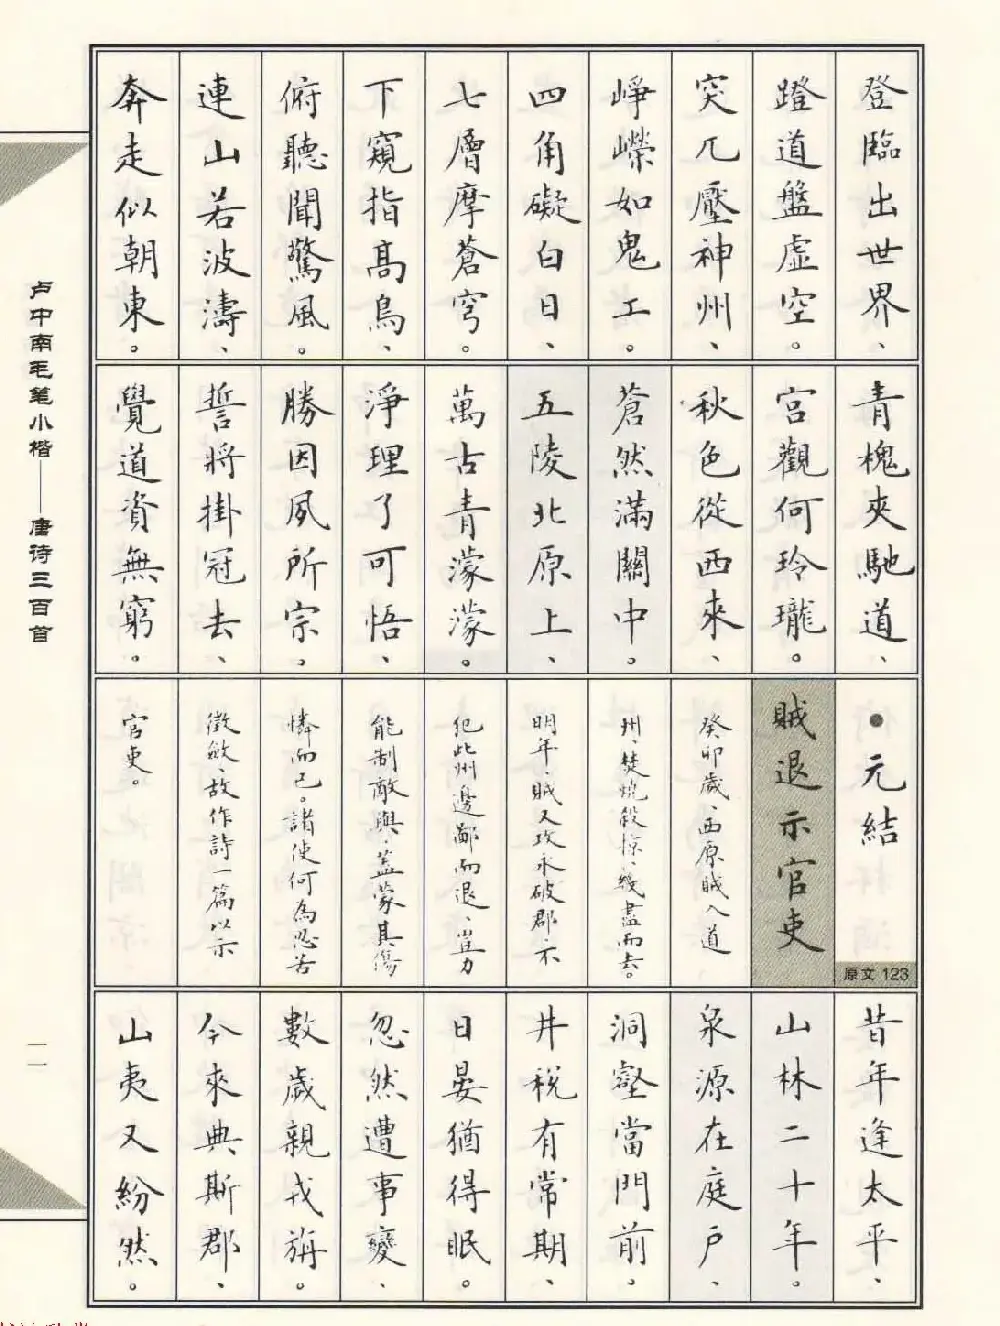 登臨出世界、
蹬道盤虛空。
突兀壓神州、
崢嶸如鬼工。
四角礙白日、
七層摩蒼穹。
下窺指高鳥、
俯聽聞驚風。
連山若波濤、
奔走似朝東。
青槐夾馳道、
宮觀何玲瓏。
秋色從西來、
蒼然滿關中。
五陵北原上、
萬古青濛濛。
淨理了可悟、
勝因夙所宗。
誓將掛冠去、
覺道資無窮。
●元結
原文 123
賊退示官吏
癸卯歲、西原賊入道
州、焚燒殺掠、幾盡而去。
明年、賊又攻永破郡、不
犯此州邊鄙而退、豈力
能制敵與、蓋蒙其傷
憐而已。諸使何為忍苦
徵斂、故作詩一篇以示
官吏。
昔年逢太平、
山林二十年。
泉源在庭戶、
洞壑當門前。
井稅有常期、
日晏猶得眠。
忽然遭事變、
數歲親戎旃。
今來典斯郡、
山夷又紛然。
卢中南毛笔小楷——唐诗三百首
一一